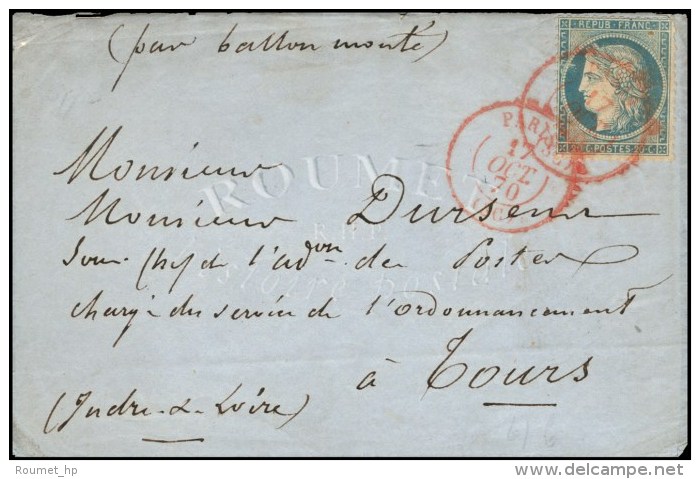 (par ballon monté)
REPUB. FRANC.
20 C. POSTES 20 C.
PARIS
17
OCT
70
Monsieur
Monsieur Durseur
Sous Chef de l'adon des Postes
chargé du service de l'ordonnancement
à Tours
(Indre-&-Loire)
ROUMET
Histoire postale
Roumet_hp
delcampe.net